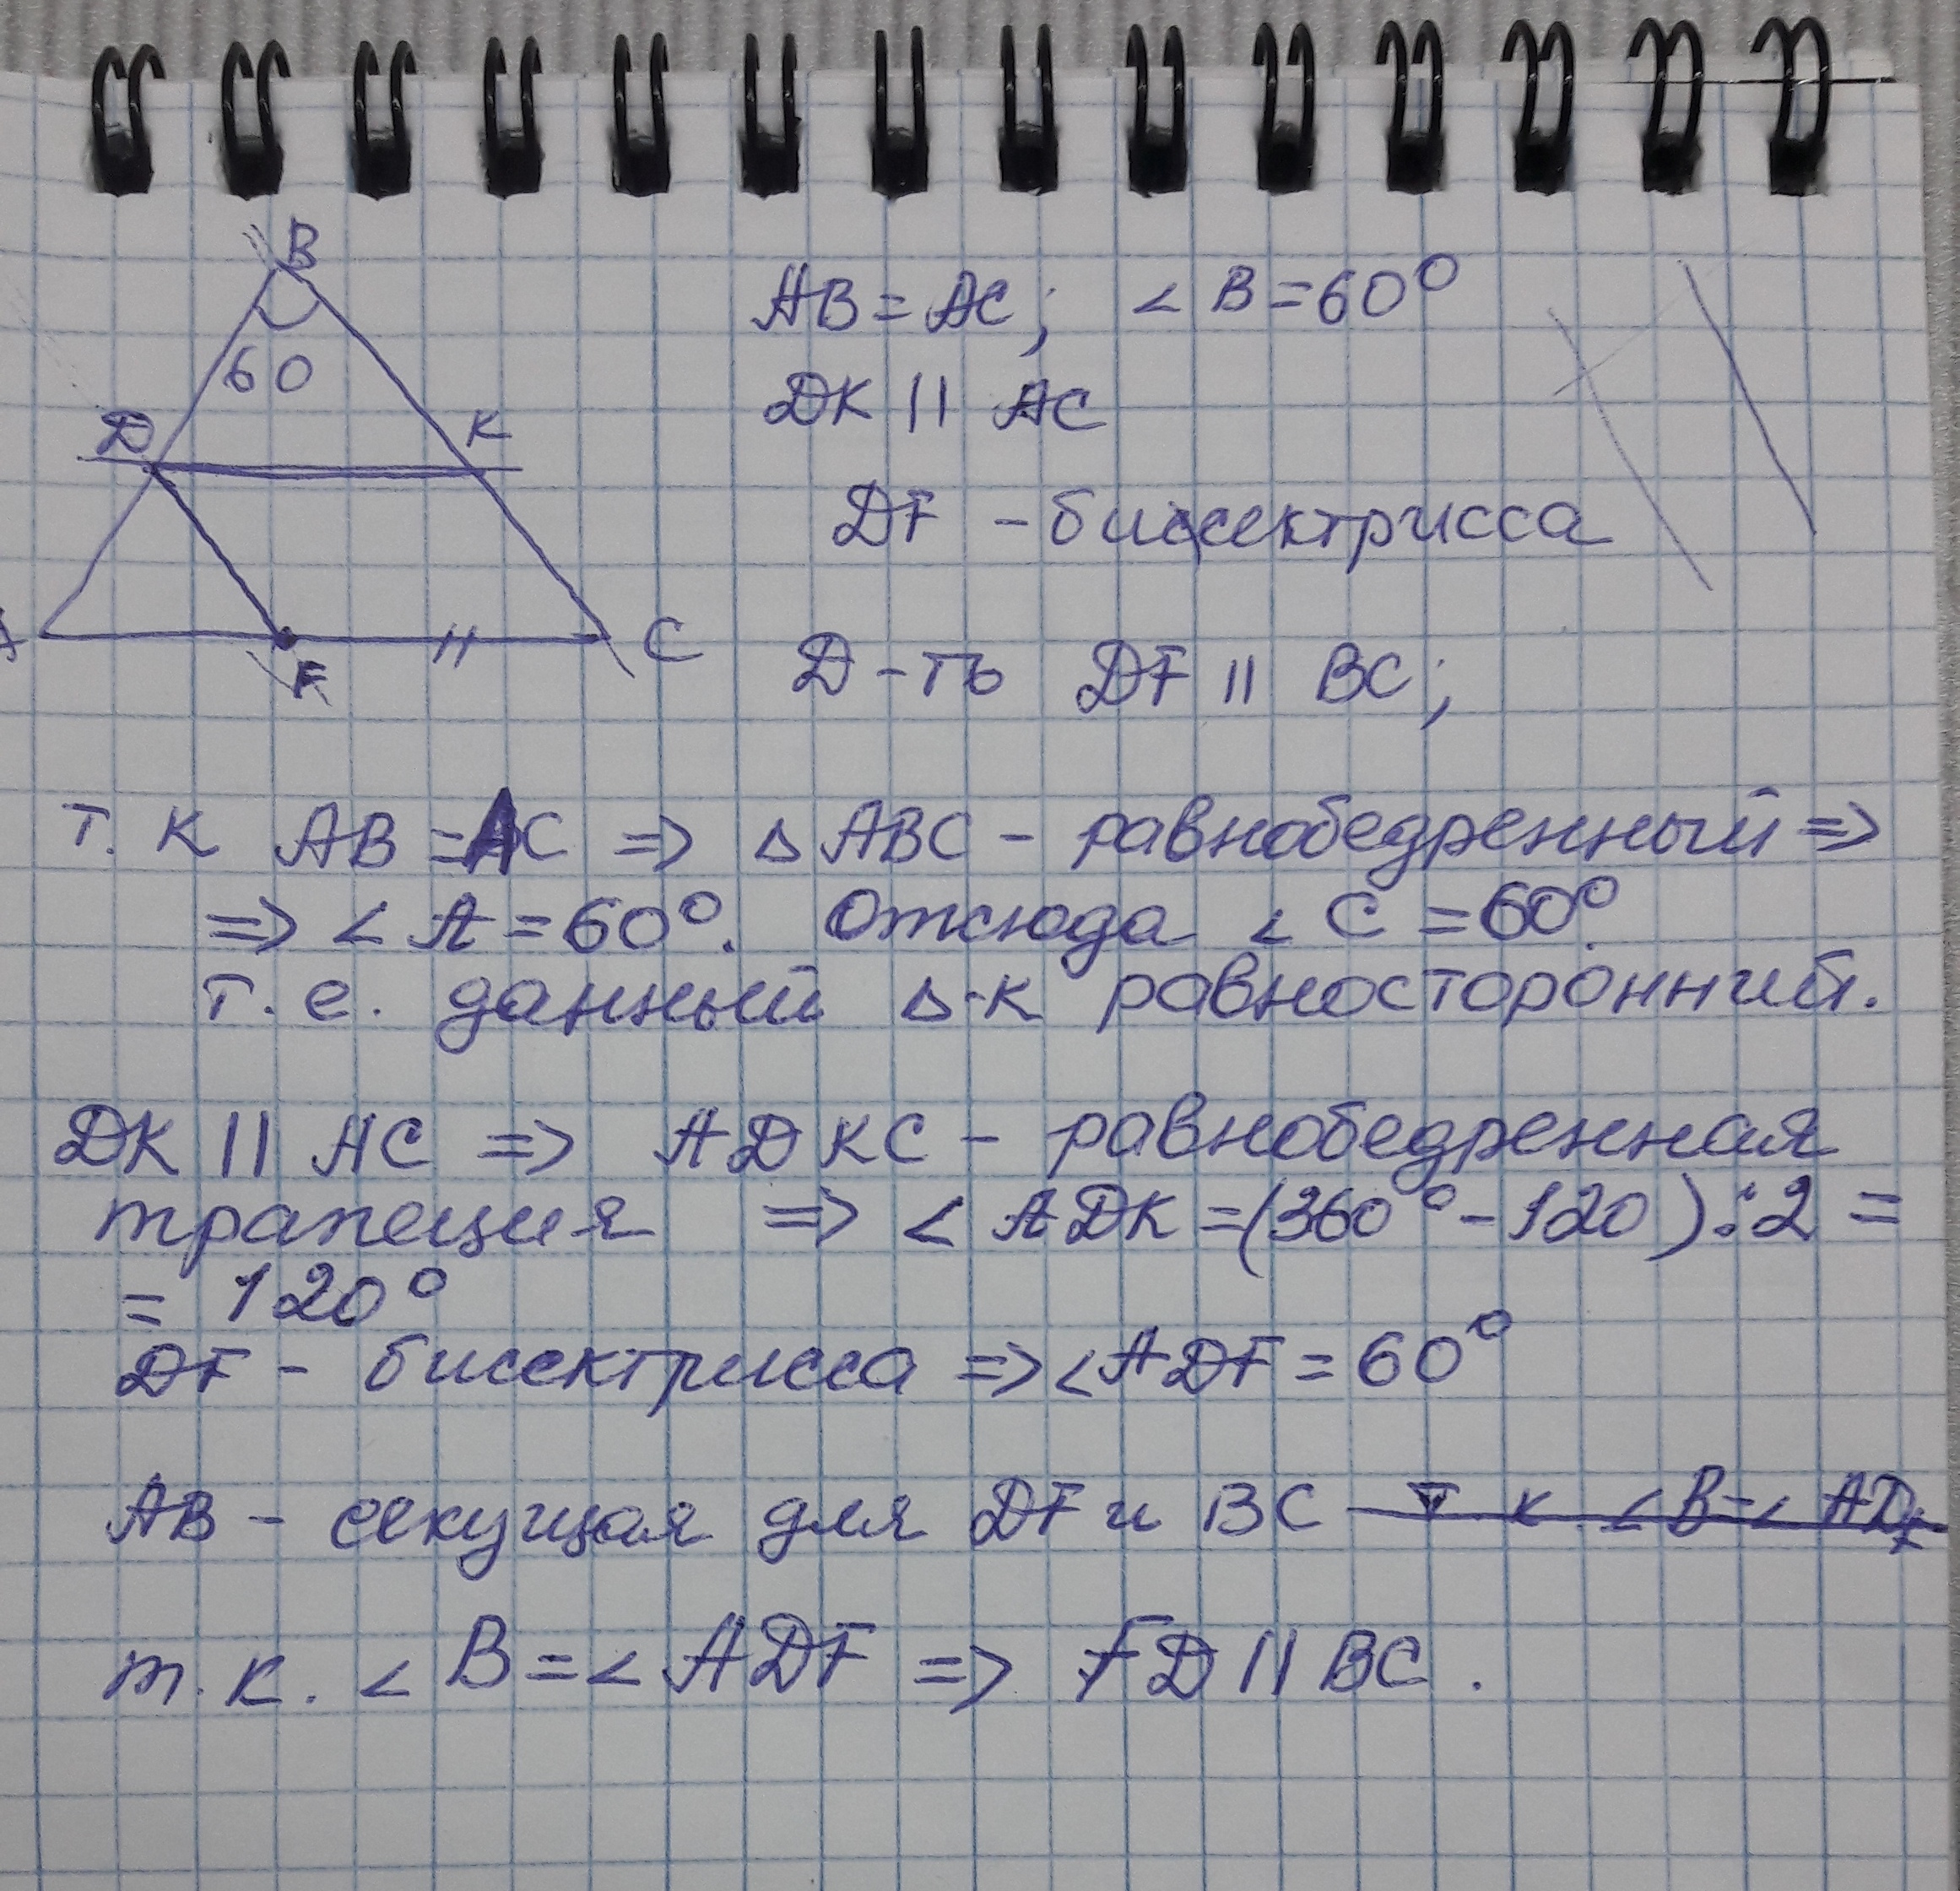 B
60
D K
A F C
AB = AC; ∠ B = 60°
DK || AC
DF - биссектрисса
Д-ть DF || BC;
т. к AB = AC => Δ ABC - равнобедренный =>
=> ∠ A = 60°. Отсюда ∠ C = 60°.
т.е. данный Δ-к равносторонний.
DK || AC => ADKC - равнобедренная
трапеция => ∠ ADK = (360° - 120) : 2 =
= 120°
DF - биссектрисса => ∠ ADF = 60°
AB - секущая для DF и BC т к ∠ B = ∠ ADF
т. к. ∠ B = ∠ ADF => FD || BC .